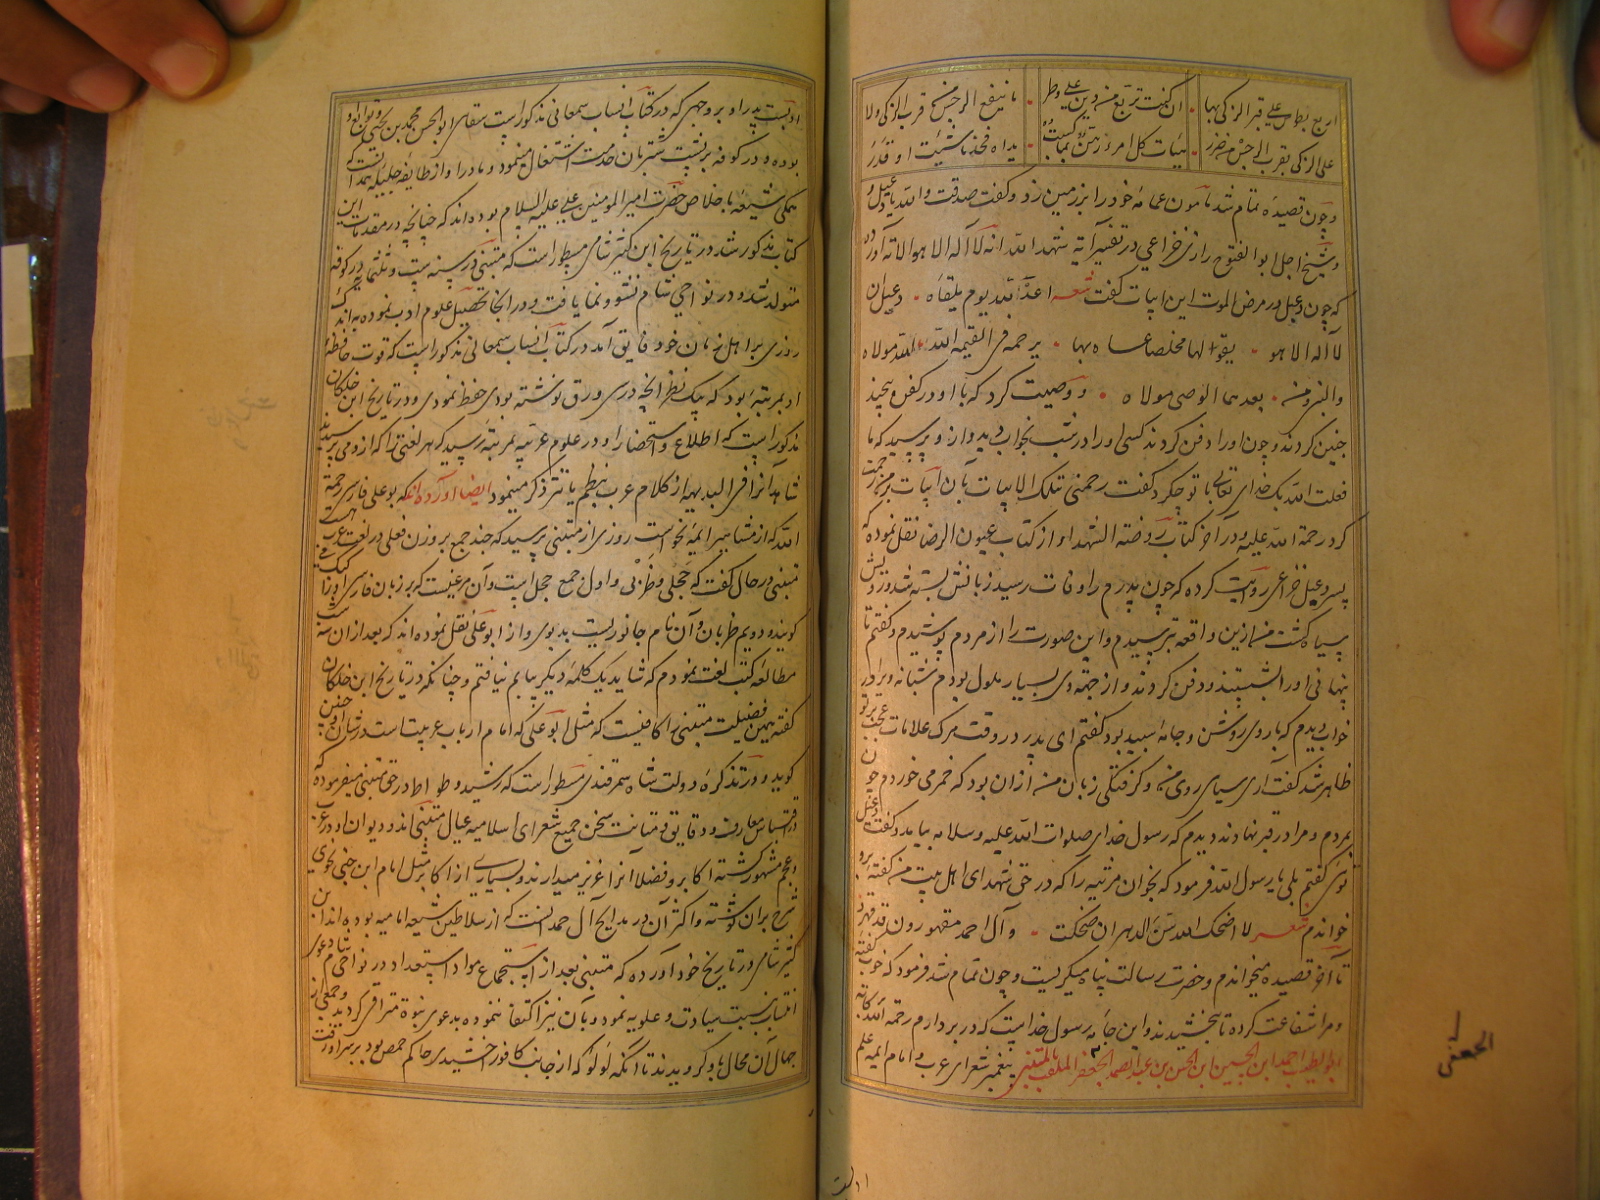 اربع بطوس علی قبر الزکی بها
ان کنت تربع من دین علی وطر
ما ینفع الرجس من قرب الزکی ولا
علی الزکی بقرب الرجس من ضرر
هیهات کل امرء رهن بما کسبت
یداه فخذ ما شئت او فذر
و چون قصیده تمام شد مامون عمامه خود را بر زمین زد و گفت صدقت والله یا دعبل و
و شیخ اجل ابو الفتوح رازی خزاعی در تفسیر آیه شهد الله انه لا اله الا هو الایه آورده
که چون دعبل در مرض الموت این ابیات گفت شعر اعد لله یوم یلقاه دعبل ان
لا اله الا هو یقولها مخلصا عساه بها یرحمه فی القیمه الله الله مولاه
والنبی ومن بعدهما الوصی مولاه و وصیت کرد که با او در کفن پیچند
چنین کردند و چون او را دفن کردند کسی او را در شب بخواب دید و از و پرسید که ما
فعلت الله بک خدای تعالی با تو چکرد گفت رحمنی بتلک الابیات بآن ابیات بر من رحمت
کرد رحمة الله علیه و در آخر کتاب روضة الشهدا و از کتاب عیون الرضا نقل نموده که
پسر دعبل خزاعی روایت کرده که چون پدرم را وفات رسید زبانش بسته شد و رویش
سیاه گشت من ازین واقعه بترسیدم و این صورت را از مردم پوشیدم و گفتم تا
پنهانی او را بشستند و دفن کردند و از جهة وی بسیار ملول بودم شبانه ویرا در
خواب دیدم که با روی روشن و جامه سپید بود گفتم ای پدر در وقت مرک علامات عجب بر تو
ظاهر شد گفت آری سیاهی روی من و گرفتگی زبان من ازان بود که خمر می خوردم چون
بمردم و مرا در قبر نهادند دیدم که رسول خدای صلوات الله علیه و سلامه بیامد و گفت دعبل
توی گفتم بلی یا رسول الله فرمود که بخوان مرثیه را که در حق شهدای اهل بیت من گفته برو
خواندم شعر لا اضحک الله سن الدهر ان ضحکت و آل احمد مقهورون قد قهروا
تا آخر قصیده میخواندم و حضرت رسالت پناه میگریست و چون تمام شد فرمود که خوب گفته
و مرا شفاعت کرد تا ببخشیدند و این جامه رسول خداست که در بر دارم رحمة الله
ابوالطیب احمد ابن الحسین ابن الحسن بن عبدالصمد الجعفر الملقب بالمتنبی پیغمبر شعرای عرب و امام ایمه علم
الجعفی
ادبست
ادبست پدر او بر وجهی که در کتاب انساب سمعانی مذکور است سقای ابو الحسن محمد بن یحیی
بوده و در کوفه بر پشت شتر بآن خدمت اشتغال مینمود و مادر او از طایفه جلیله همدانست
بمکی شیعه با خلاص حضرت امیر المومنین علی علیه السلام بوده اند که چنانچه در مقدمات این
کتاب مذکور شد در تاریخ ابن کثیر شامی مسطور است که متنبی در سنه ست و ثلثمایه در کوفه
متولد شد و در نواحی شام نشو و نما یافت و در انجا تحصیل علوم ادب نموده به اندک
روزی بر اهل زمان خود فایق آمد در کتاب انساب سمعانی مذکور است که قوت حافظه
او بمرتبه بود که بیک نظر انچه در سی ورق نوشته بودی حفظ نمودی و در تاریخ ابن خلکان
مذکور است که اطلاع و استحضار او در علوم عربیه بمرتبه رسید که هر لغتی را که ازو می پرسیدند
شاهد آنرا فی البدیهه از کلام عرب بنظم یا نثر ذکر مینمود ایضا آورده اند که بو علی فارسی رحمة
الله که از مشاهیر ایمه نحو است روزی از متنبی پرسید که چند جمع بر وزن فعلی در لغت عرب
متنبی در حال گفت که حجلی و ظربی و اول جمع حجل است و آن مرغیست که بر زبان فارسی او را کبک
گویند و دویم ظربان و آن نام جانوریست بد بوی و از ابو علی نقل نموده اند که بعد از آن سه شب
مطالعه کتب لغت نمودم که شاید یک کلمه دیگر بیابم نیافتم و چنانکه در تاریخ ابن خلکان
گفته همین فضیلت متنبی را کافیست که مثل ابو علی که امام ارباب عربیت است در شان او چنین
گوید و در تذکره دولت شاه سمرقندی مسطور است که رشید وطواط در حق متنبی میفرموده که
در اقتباس معارف و دقایق و متانت سخن جمیع شعرای اسلامیه عیال متنبی اند و دیوان او در عرب
و عجم مشهور گشته اکابر و فضلا آنرا عزیز میدارند و بسیاری از اکابر مثل امام ابن جنی نحوی
شرح بران نوشته و اکثر آن در مدایح آل حمدانست که از سلاطین شیعه امامیه بوده اند ابن
کثیر شامی در تاریخ خود آورده که متنبی بعد از استجماع مواد استعداد در نواحی شام دعوی
انتساب بنسبت سیادت و علویه نمود و بآن نیز اکتفا ننموده بدعوی نبوة مترقی کردید و جمعی از
جهال آن محال باو گرویدند تا آنکه لؤلؤ که از جانب کافور اخشیدی حاکم حمص بود بر سر او رفت